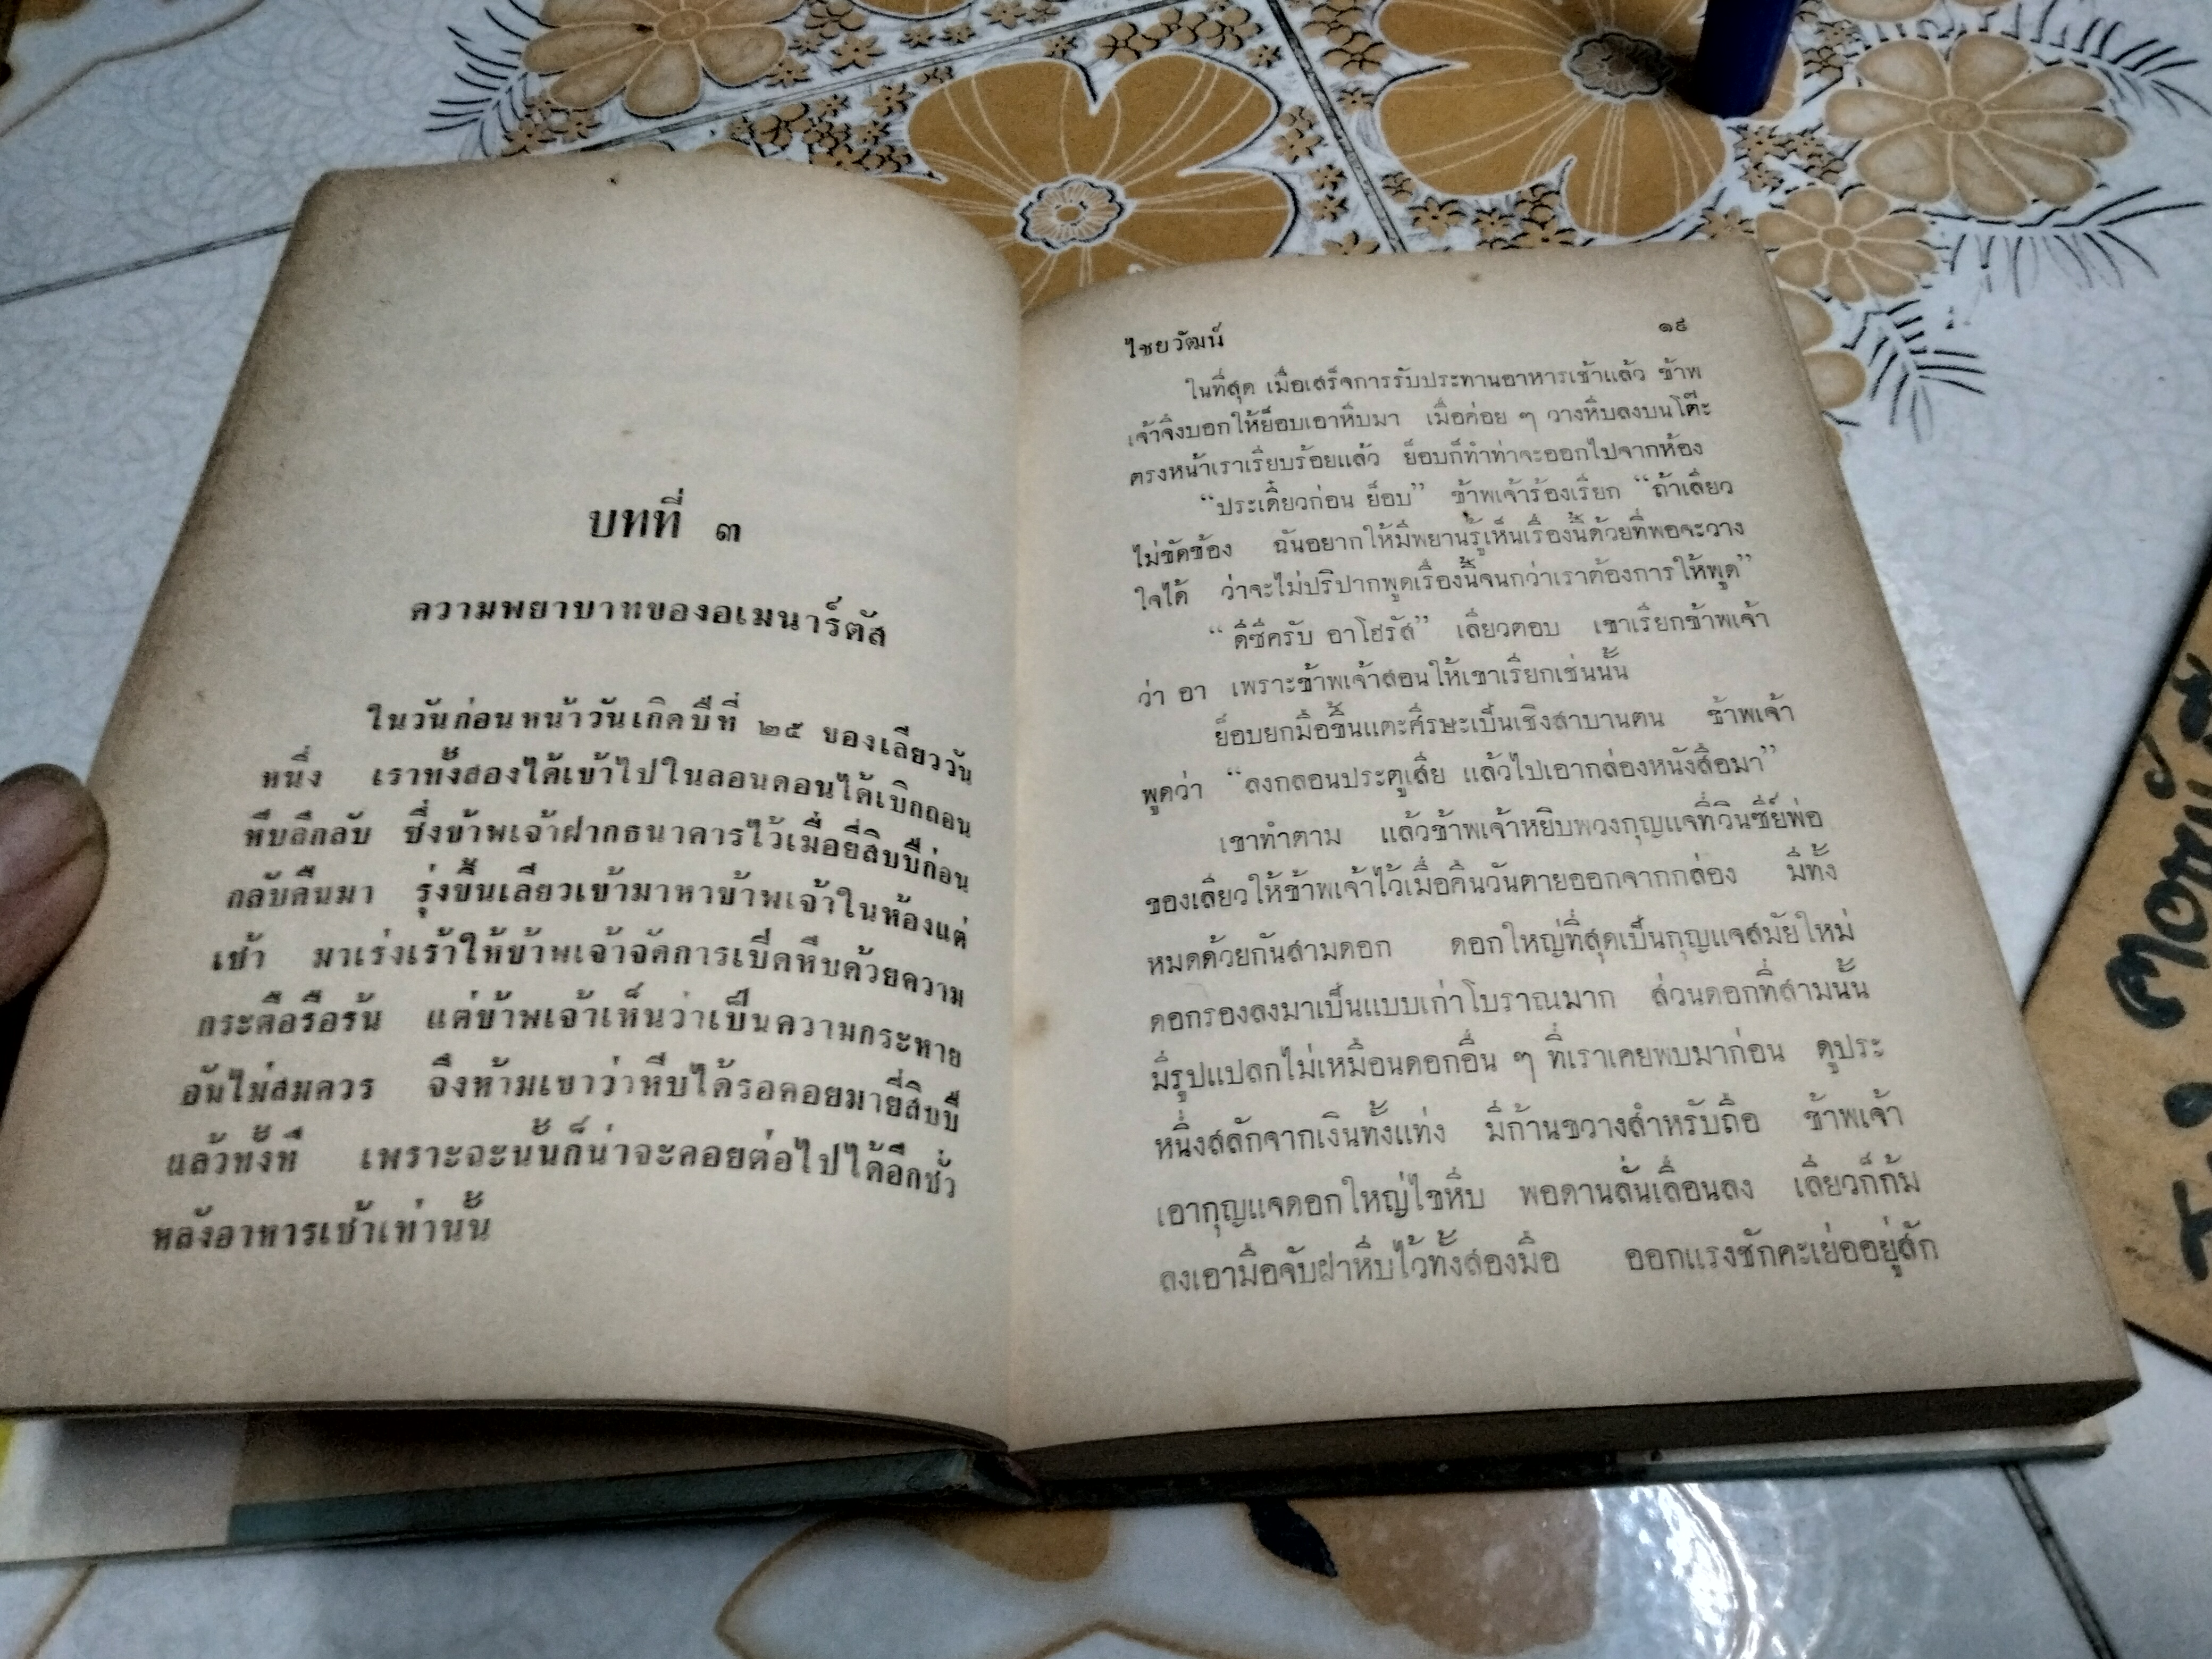 บทที่ ๓
ความพยาบาทของอเมนาร์ตัส
ในวันก่อนหน้าวันเกิดปีที่ ๒๕ ของเลียววัน
หนึ่ง เราทั้งสองได้เข้าไปในลอนดอนได้เบิกถอน
หีบลึกลับ ซึ่งข้าพเจ้าฝากธนาคารไว้เมื่อยี่สิบปีก่อน
กลับคืนมา รุ่งขึ้นเลียวเข้ามาหาข้าพเจ้าในห้องแต่
เช้า มาเร่งเร้าให้ข้าพเจ้าจัดการเปิดหีบด้วยความ
กระตือรือร้น แต่ข้าพเจ้าเห็นว่าเป็นความกระหาย
อันไม่สมควร จึงห้ามเขาว่าหีบได้รอคอยมายี่สิบปี
แล้วทั้งที เพราะฉะนั้นก็น่าจะคอยต่อไปได้อีกชั่ว
หลังอาหารเช้าเท่านั้น
ไชยวัฒน์ ๑๙
ในที่สุด เมื่อเสร็จการรับประทานอาหารเช้าแล้ว ข้าพ
เจ้าจึงบอกให้ย็อบเอาหีบมา เมื่อค่อย ๆ วางหีบลงบนโต๊ะ
ตรงหน้าเราเรียบร้อยแล้ว ย็อบก็ทำท่าจะออกไปจากห้อง
“ประเดี๋ยวก่อน ย็อบ” ข้าพเจ้าร้องเรียก “ถ้าเลียว
ไม่ขัดข้อง ฉันอยากให้มีพยานรู้เห็นเรื่องนี้ด้วยที่พอจะวาง
ใจได้ ว่าจะไม่ปริปากพูดเรื่องนี้จนกว่าเราต้องการให้พูด”
“ดีซีครับ อาโฮรัส” เลียวตอบ เขาเรียกข้าพเจ้า
ว่า อา เพราะข้าพเจ้าสอนให้เขาเรียกเช่นนั้น
ย็อบยกมือขึ้นแตะศีรษะเป็นเชิงสาบานตน ข้าพเจ้า
พูดว่า “ลงกลอนประตูเสีย แล้วไปเอากล่องหนังสือมา”
เขาทำตาม แล้วข้าพเจ้าหยิบพวงกุญแจที่วินซีย์พ่อ
ของเลียวให้ข้าพเจ้าไว้เมื่อคืนวันตายออกจากกล่อง มีทั้ง
หมดด้วยกันสามดอก ดอกใหญ่ที่สุดเป็นกุญแจสมัยใหม่
ดอกรองลงมาเป็นแบบเก่าโบราณมาก ส่วนดอกที่สามนั้น
มีรูปแปลกไม่เหมือนดอกอื่น ๆ ที่เราเคยพบมาก่อน ดูประ
หนึ่งสลักจากเงินทั้งแท่ง มีก้านขวางสำหรับถือ ข้าพเจ้า
เอากุญแจดอกใหญ่ไขหีบ พอดานลั่นเลื่อนลง เลียวก็ก้ม
ลงเอามือจับฝาหีบไว้ทั้งสองมือ ออกแรงชักคะเย่ออยู่สัก